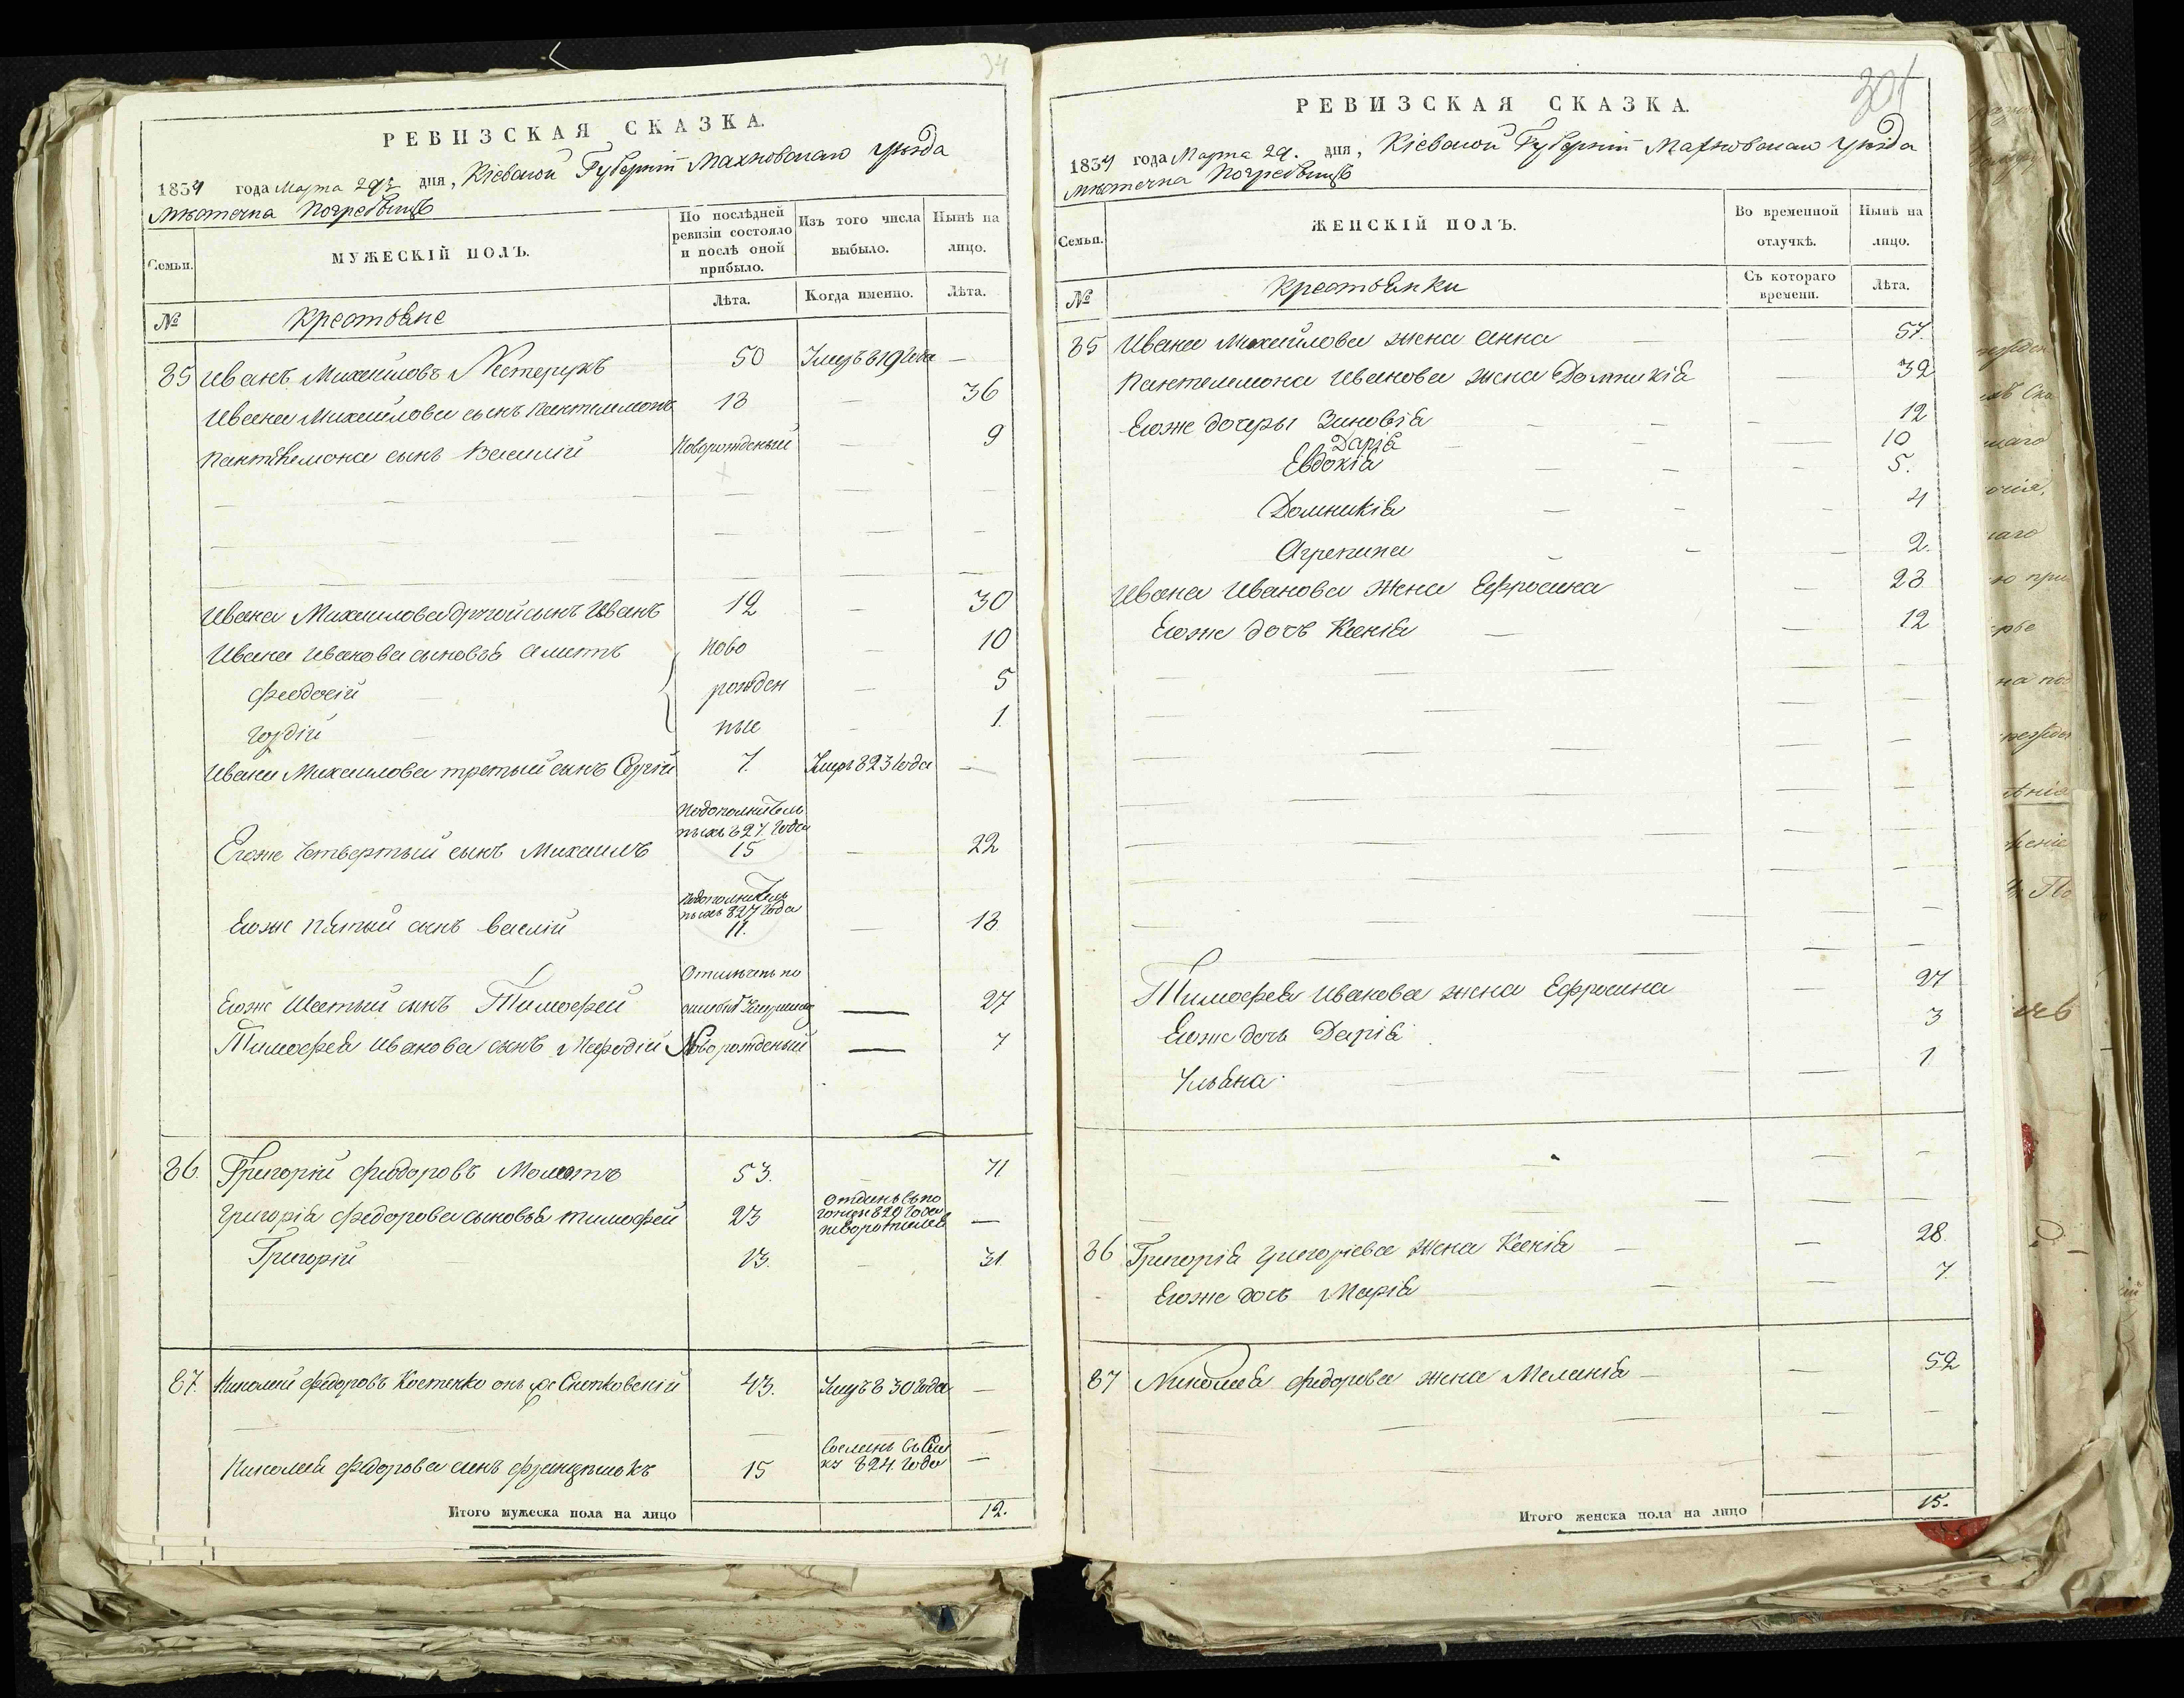 34
РЕВИЗСКАЯ СКАЗКА.
1834 года Марта 29 дня, Кіевской Губерніи Махновскаго уѣзда
мѣстечка Погребищъ
Семьи.
МУЖЕСКІЙ ПОЛЪ.
По послѣдней ревизіи состояло и послѣ оной прибыло.
Изъ того числа выбыло.
Нынѣ на лицо.
№
Крестьяне
Лѣта.
Когда именно.
Лѣта.
85 Иванъ Михайловъ Нестерукъ 50 Умръ 819 Года —
Ивана Михайлова сынъ Пантелимонъ 18 — 36
Пантелемона сынъ Василій Новорожденый — 9
Ивана Михаилова другой сынъ Иванъ 12 — 30
Ивана Иванова сыновья ново — 10
Феодосій рожден — 5
Гордій ные — 1.
Ивана Михаилова третый сынъ 7. Умръ 823 Года —
Подополнитель
нымъ 827 Года
Егоже Четвертый сынъ Михаилъ 15 — 22
Подополнитель
нымъ 827 Года
Егоже Пятый сынъ Василій 11. — 18
по
Егоже Шестый сынъ Тимофей ошибкѣ — 27
Тимофея Иванова сынъ Мефодій Новорожденый — 7
86. Григорій Феодоровъ 53. — 71
Григорія Федорова сыновья Тимофей 23 —
Григорій 13. — 31
87. Николай Федоровъ Костенко онъ же Снопковскій 43. Умръ 830 Года —
Николая Федорова сынъ Францышокъ 15 824 Года —
Итого мужеска пола на лицо 12.
301
РЕВИЗСКАЯ СКАЗКА.
1834 года Марта 29. дня, Кіевской Губерніи Махновскаго уѣзда
мѣстечка Погребищъ
Семьи.
ЖЕНСКІЙ ПОЛЪ.
Во временной отлучкѣ.
Нынѣ на лицо.
№
Крестьянки
Съ котораго времени.
Лѣта.
85 Ивана Михайлова жена Анна — 57.
Пантелемона Иванова жена Домникія — 32
Егоже дочеры Зиновія — 12
Дарія — 10
Евдокія — 5.
Домникія — 4
Агрепина — 2.
Ивана Иванова Жена Ефросина — 28
Егоже дочь Ксенія — 12
Тимофея Иванова жена Ефросина — 27
Егоже дочь Дарія 3
Ульяна — 1
86 Григорія Григоріева Жена Ксенія — 28.
Егоже дочь Марія — 7.
87 Николая Федорова жена Меланія — 52
Итого женска пола на лицо 15.